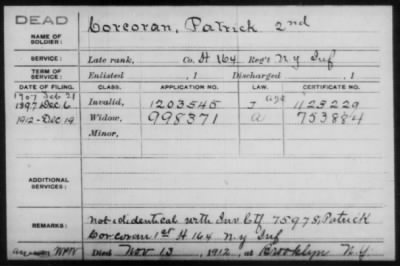 DEAD
NAME OF SOLDIER: Corcoran, Patrick 2nd
SERVICE: Late rank, Co. H 164 Reg't N.Y. Inf
TERM OF SERVICE: Enlisted , 1 Discharged , 1
DATE OF FILING. CLASS. APPLICATION NO. LAW. CERTIFICATE NO.
1907 Feb 21
1897 Dec 6 Invalid, 1203545 Age 1123229
1912-Dec 19 Widow, 998371 a 753884
Minor,
ADDITIONAL SERVICES:
REMARKS: not identical with Inv Ctf 75978, Patrick
Corcoran 1st H 164 N.Y. Inf
Died Nov 13, 1912, at Brooklyn N.Y.